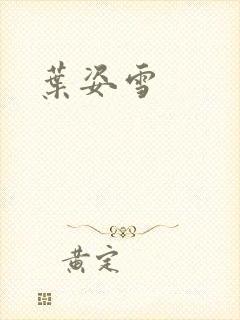 葉姿雪
黄定